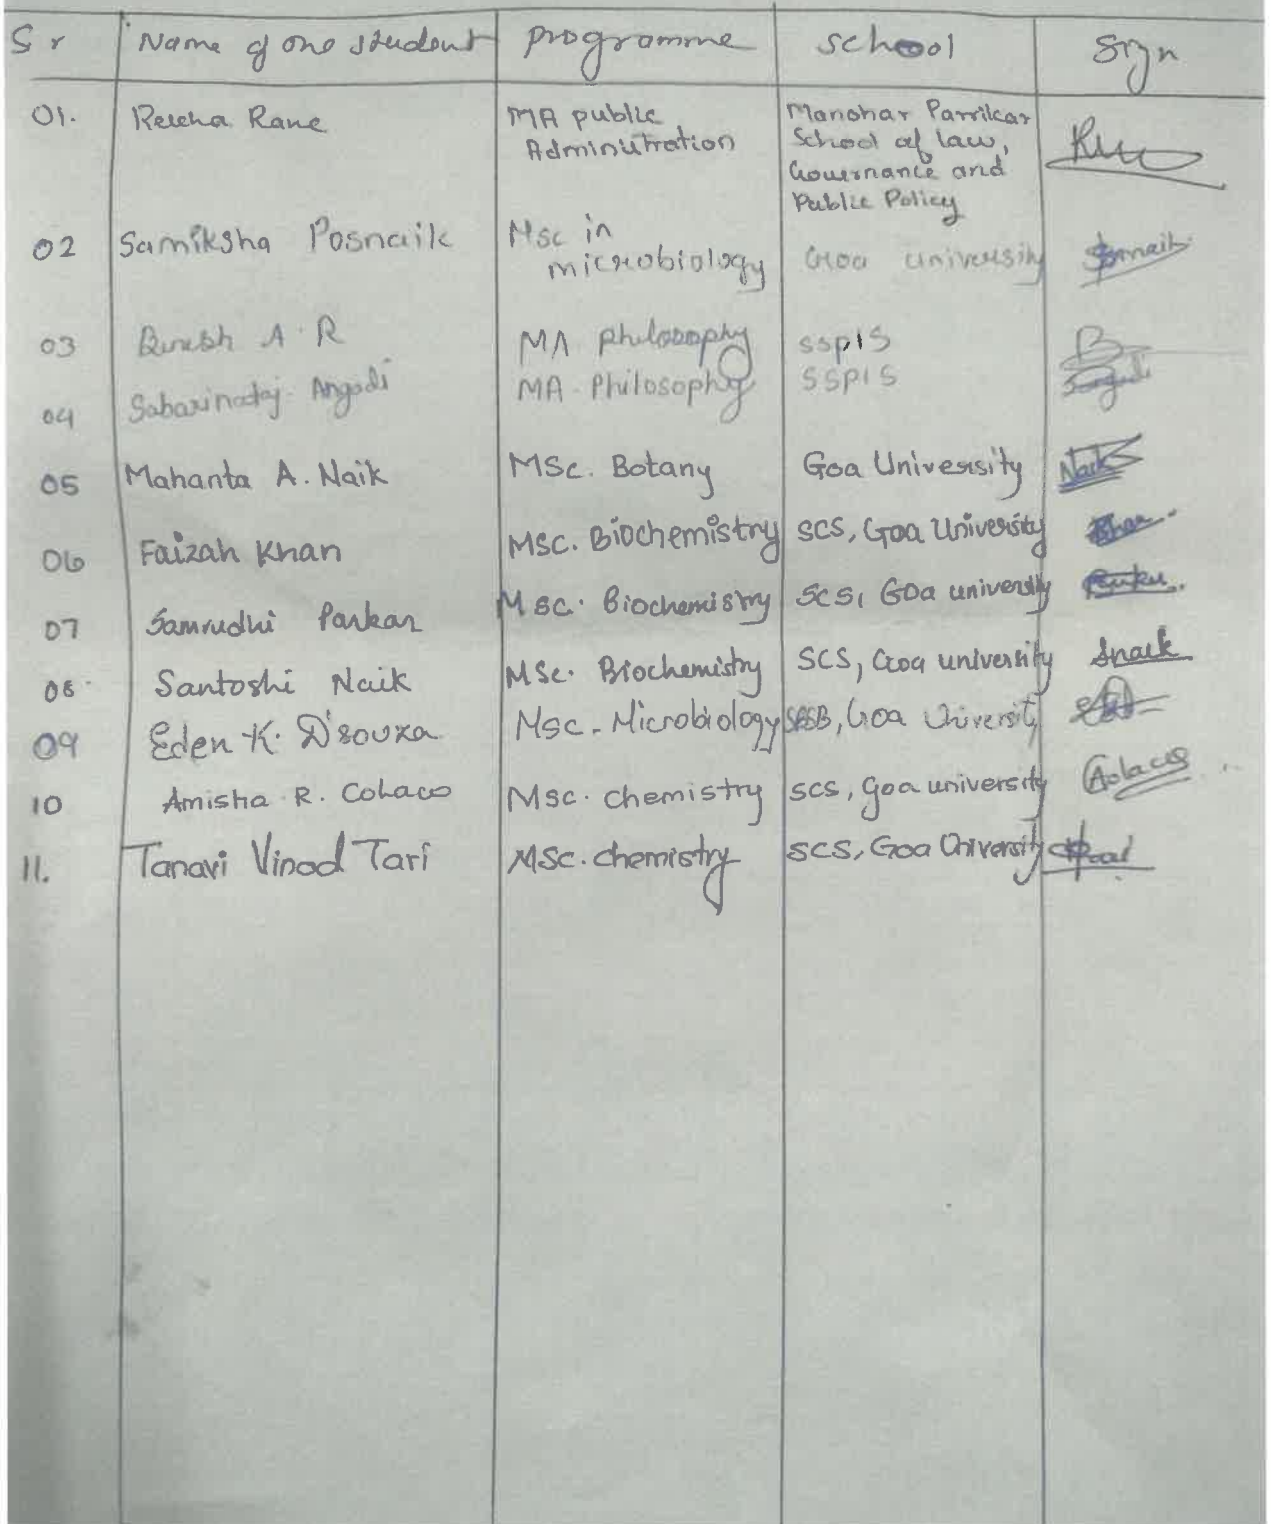 Sr Name of one student programme school sign
01. Rane MA public Administration Manohar Parrikar School of law, Governance and Public Policy
02 Samiksha Posnaik Msc in microbiology Goa university
03 A. R MA philosophy SSPIS
04 Angadi MA. Philosophy SSPIS
05 Mahanta A. Naik MSc. Botany Goa University Naik
06 Faizah Khan MSC. Biochemistry SCS, Goa University Khan
07 Samrudhi Parkar MSC. Biochemistry SCS, Goa university
08 Santoshi Naik MSc. Biochemistry SCS, Goa university Snaik
09 Eden K. D'souza Msc. Microbiology Goa University
10 Amisha R. Colaco Msc. chemistry SCS, Goa university
11. Tanavi Vinod Tari MSc. chemistry SCS, Goa University